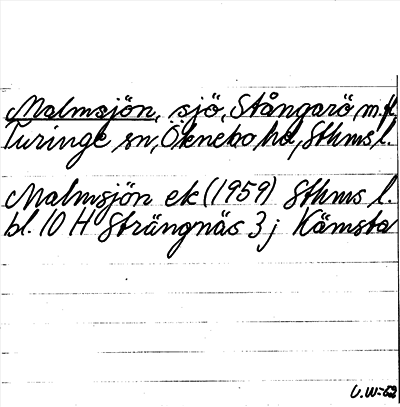 Malmsjön, sjö, Stångarö, m.fl.
Turinge sn, Öknebo hd, Sthms l.
Malmsjön ek (1959) Sthms l.
bl. 10 H Strängnäs 3 j Kämsta
U.W-62